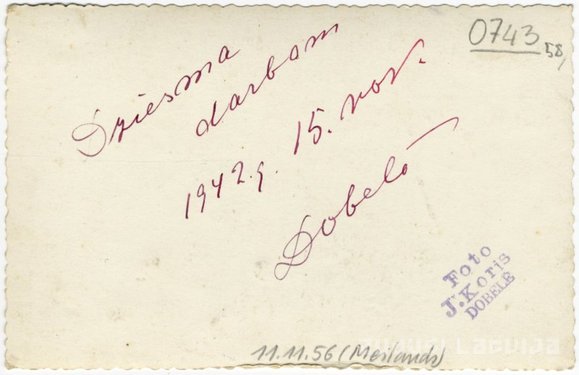 0743
58,
Dziesma
darbam
1942.g. 15. nov.
Dobelē
Foto
J. Koris
DOBELĒ
11.11.56 (Meilands)